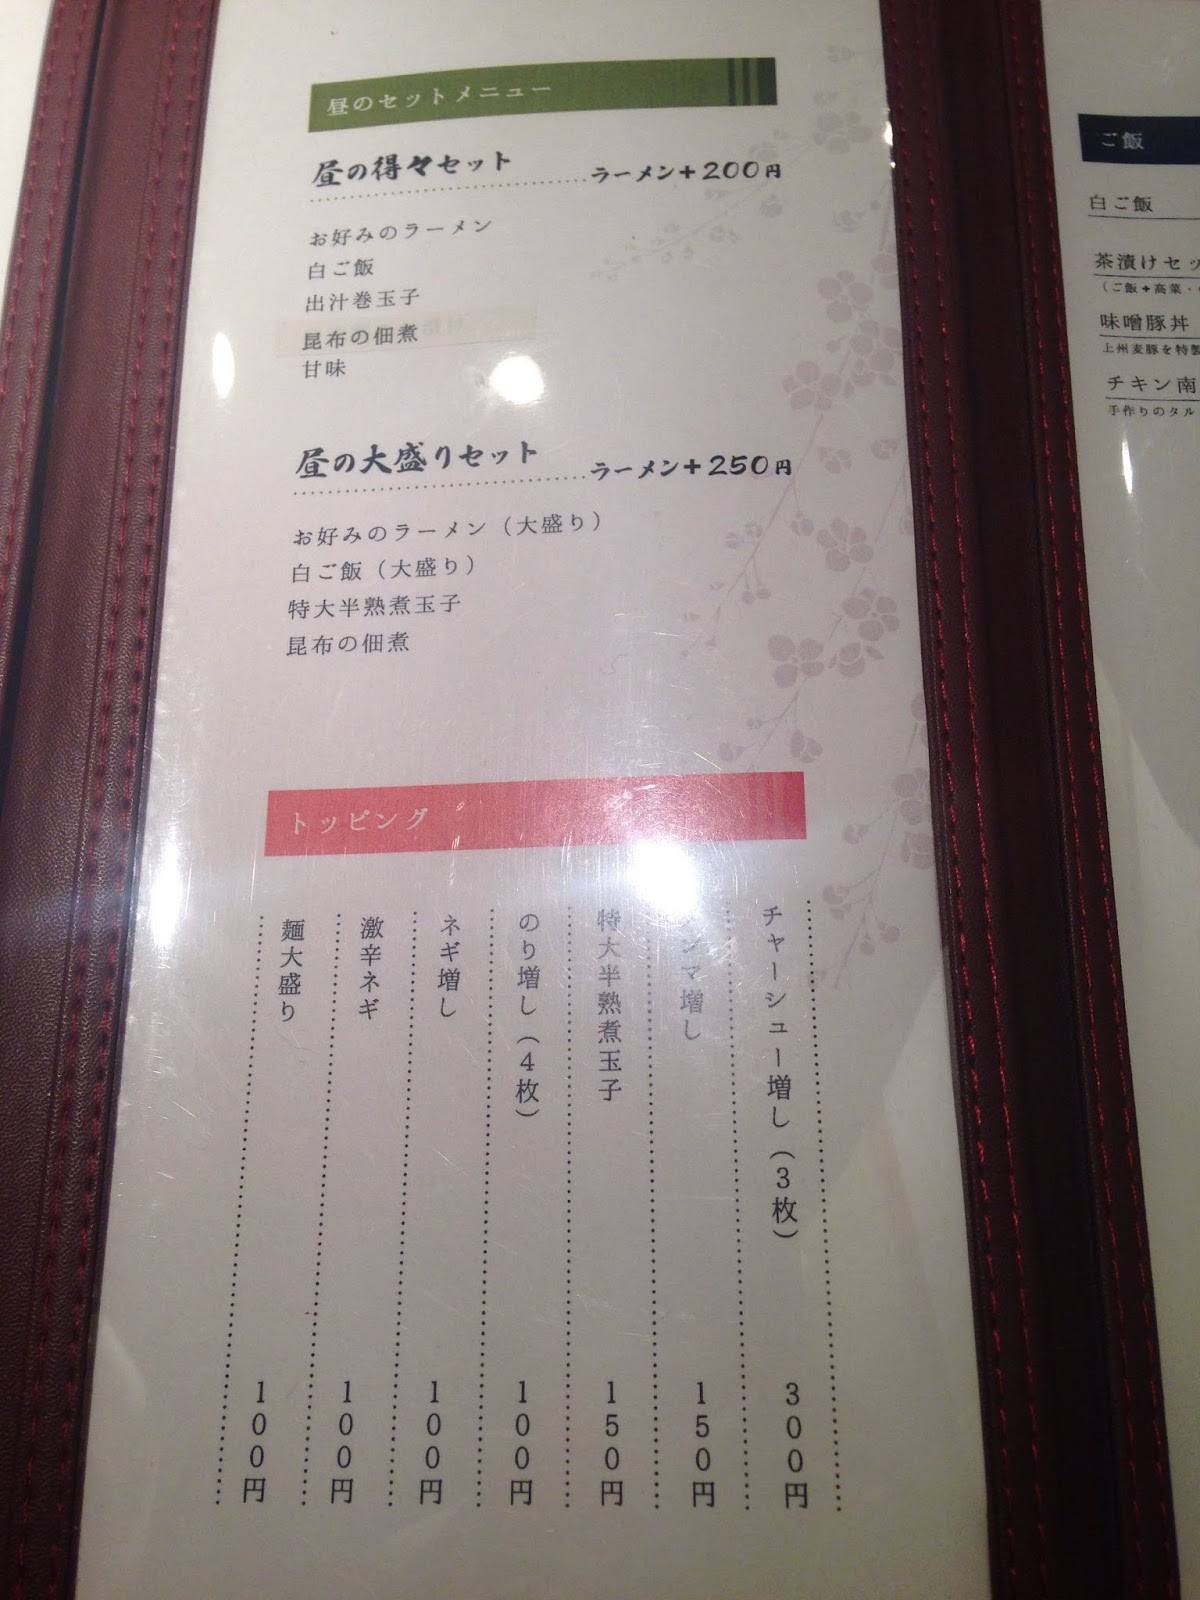 昼のセットメニュー
昼の得々セット ラーメン+200円
お好みのラーメン
白ご飯
出汁巻玉子
昆布の佃煮
甘味
昼の大盛りセット ラーメン+250円
お好みのラーメン（大盛り）
白ご飯（大盛り）
特大半熟煮玉子
昆布の佃煮
トッピング
チャーシュー増し（3枚） 300円
ンマ増し 150円
特大半熟煮玉子 150円
のり増し（4枚） 100円
ネギ増し 100円
激辛ネギ 100円
麺大盛り 100円
ご飯
白ご飯
茶漬けセッ
（ご飯+高菜・
味噌豚丼
上州麦豚を特製
チキン南
手作りのタル